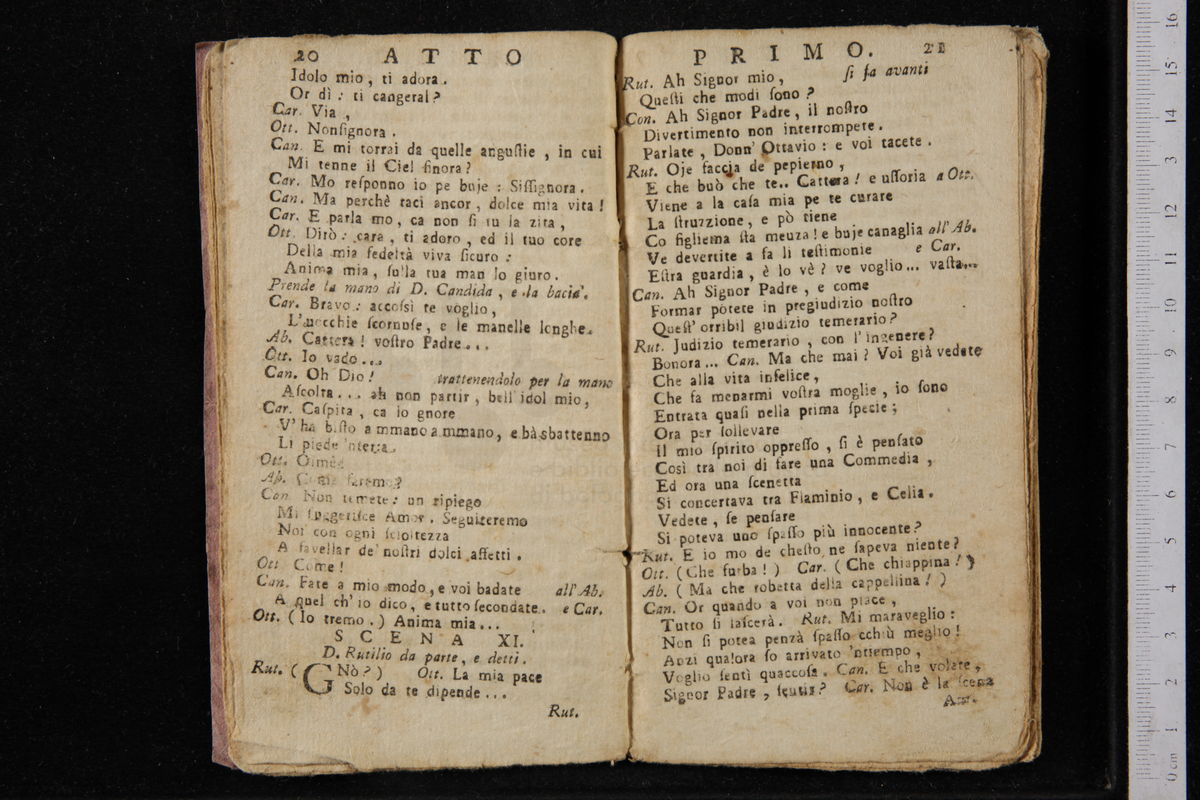 20 ATTO
Idolo mio, ti adora.
Or dì: ti cangeraI?
Car. Via,
Ott. Nonſignora.
Can. E mi torrai da quelle anguſtie, in cui
Mi tenne il Ciel finora?
Car. Mo reſponno io pe buje: Siſſignora.
Can. Ma perchè taci ancor, dolce mia vita!
Car. E parla mo, ca non ſi tu la zita,
Ott. Dirò: cara, ti adoro, ed il tuo core
Della mia fedeltà viva ſicuro:
Anima mia, ſulla tua man lo giuro.
Prende la mano di D. Candida, e la bacia.
Car. Bravo: accoſsì te voglio,
L'auecchie ſcornoſe, e le manelle longhe.
Ab. Cattera! voſtro Padre...
Ott. Io vado...
Can. Oh Dio! trattenendolo per la mano
Aſcolta... ah non partir, bell'idol mio,
Car. Caſpita, ca lo gnore
V'ha biſto ammano ammano, e bà sbattenno
Li piede 'nterra.
Ott. Oimè!
Ab. Come faremo?
Can. Non temete: un ripiego
Mi ſuggeriſce Amor. Seguiteremo
Noi con ogni ſcioltezza
A favellar de' noſtri dolci affetti.
Ott. Come!
Can. Fate a mio modo, e voi badate all' Ab.
A quel ch'io dico, e tutto ſecondate. e Car.
Ott. (Io tremo.) Anima mia...
SCENA XI.
D. Rutilio da parte, e detti.
Rut. (GNò?) Ott. La mia pace
Solo da te dipende...
Rut.
PRIMO. 21
Rut. Ah Signor mio, ſi fa avanti
Queſti che modi ſono?
Con. Ah Signor Padre, il noſtro
Divertimento non interrompete.
Parlate, Donn' Ottavio: e voi tacete.
Rut. Oje faccia de pepierno,
E che buò che te.. Cattera! e uſſoria a Ott.
Viene a la caſa mia pe te curare
La ſtruzzione, e pò tiene
Co figliema ſta meuza! e buje canaglia all' Ab.
Ve devertite a fa li teſtimonie e Car.
Eſtra guardia, è lo vè? ve voglio... vaſta...
Can. Ah Signor Padre, e come
Formar potete in pregiudizio noſtro
Queſt' orribil giudizio temerario?
Rut. Judizio temerario, con l'ingenere?
Bonora... Can. Ma che mai? Voi già vedete
Che alla vita infelice,
Che fa menarmi voſtra moglie, io ſono
Entrata quaſi nella prima ſpecie;
Ora per ſollevare
Il mio ſpirito oppreſſo, ſi è penſato
Così tra noi di fare una Commedia,
Ed ora una ſcenetta
Si concertava tra Flaminio, e Celia.
Vedete, ſe penſare
Si poteva uno ſpaſſo più innocente?
Rut. E io mo de cheſto ne ſapeva niente?
Ott. (Che furba!) Car. (Che chiappina!)
Ab. (Ma che robetta della cappellina!)
Can. Or quando a voi non piace,
Tutto ſi laſcerà. Rut. Mi maraveglio:
Non ſi potea penzà ſpaſſo cchiù meglio!
Anzi qualora ſo arrivato 'ntiempo,
Voglio ſentì quaccoſa. Can. E che volete,
Signor Padre, ſentir? Car. Non è la ſcena